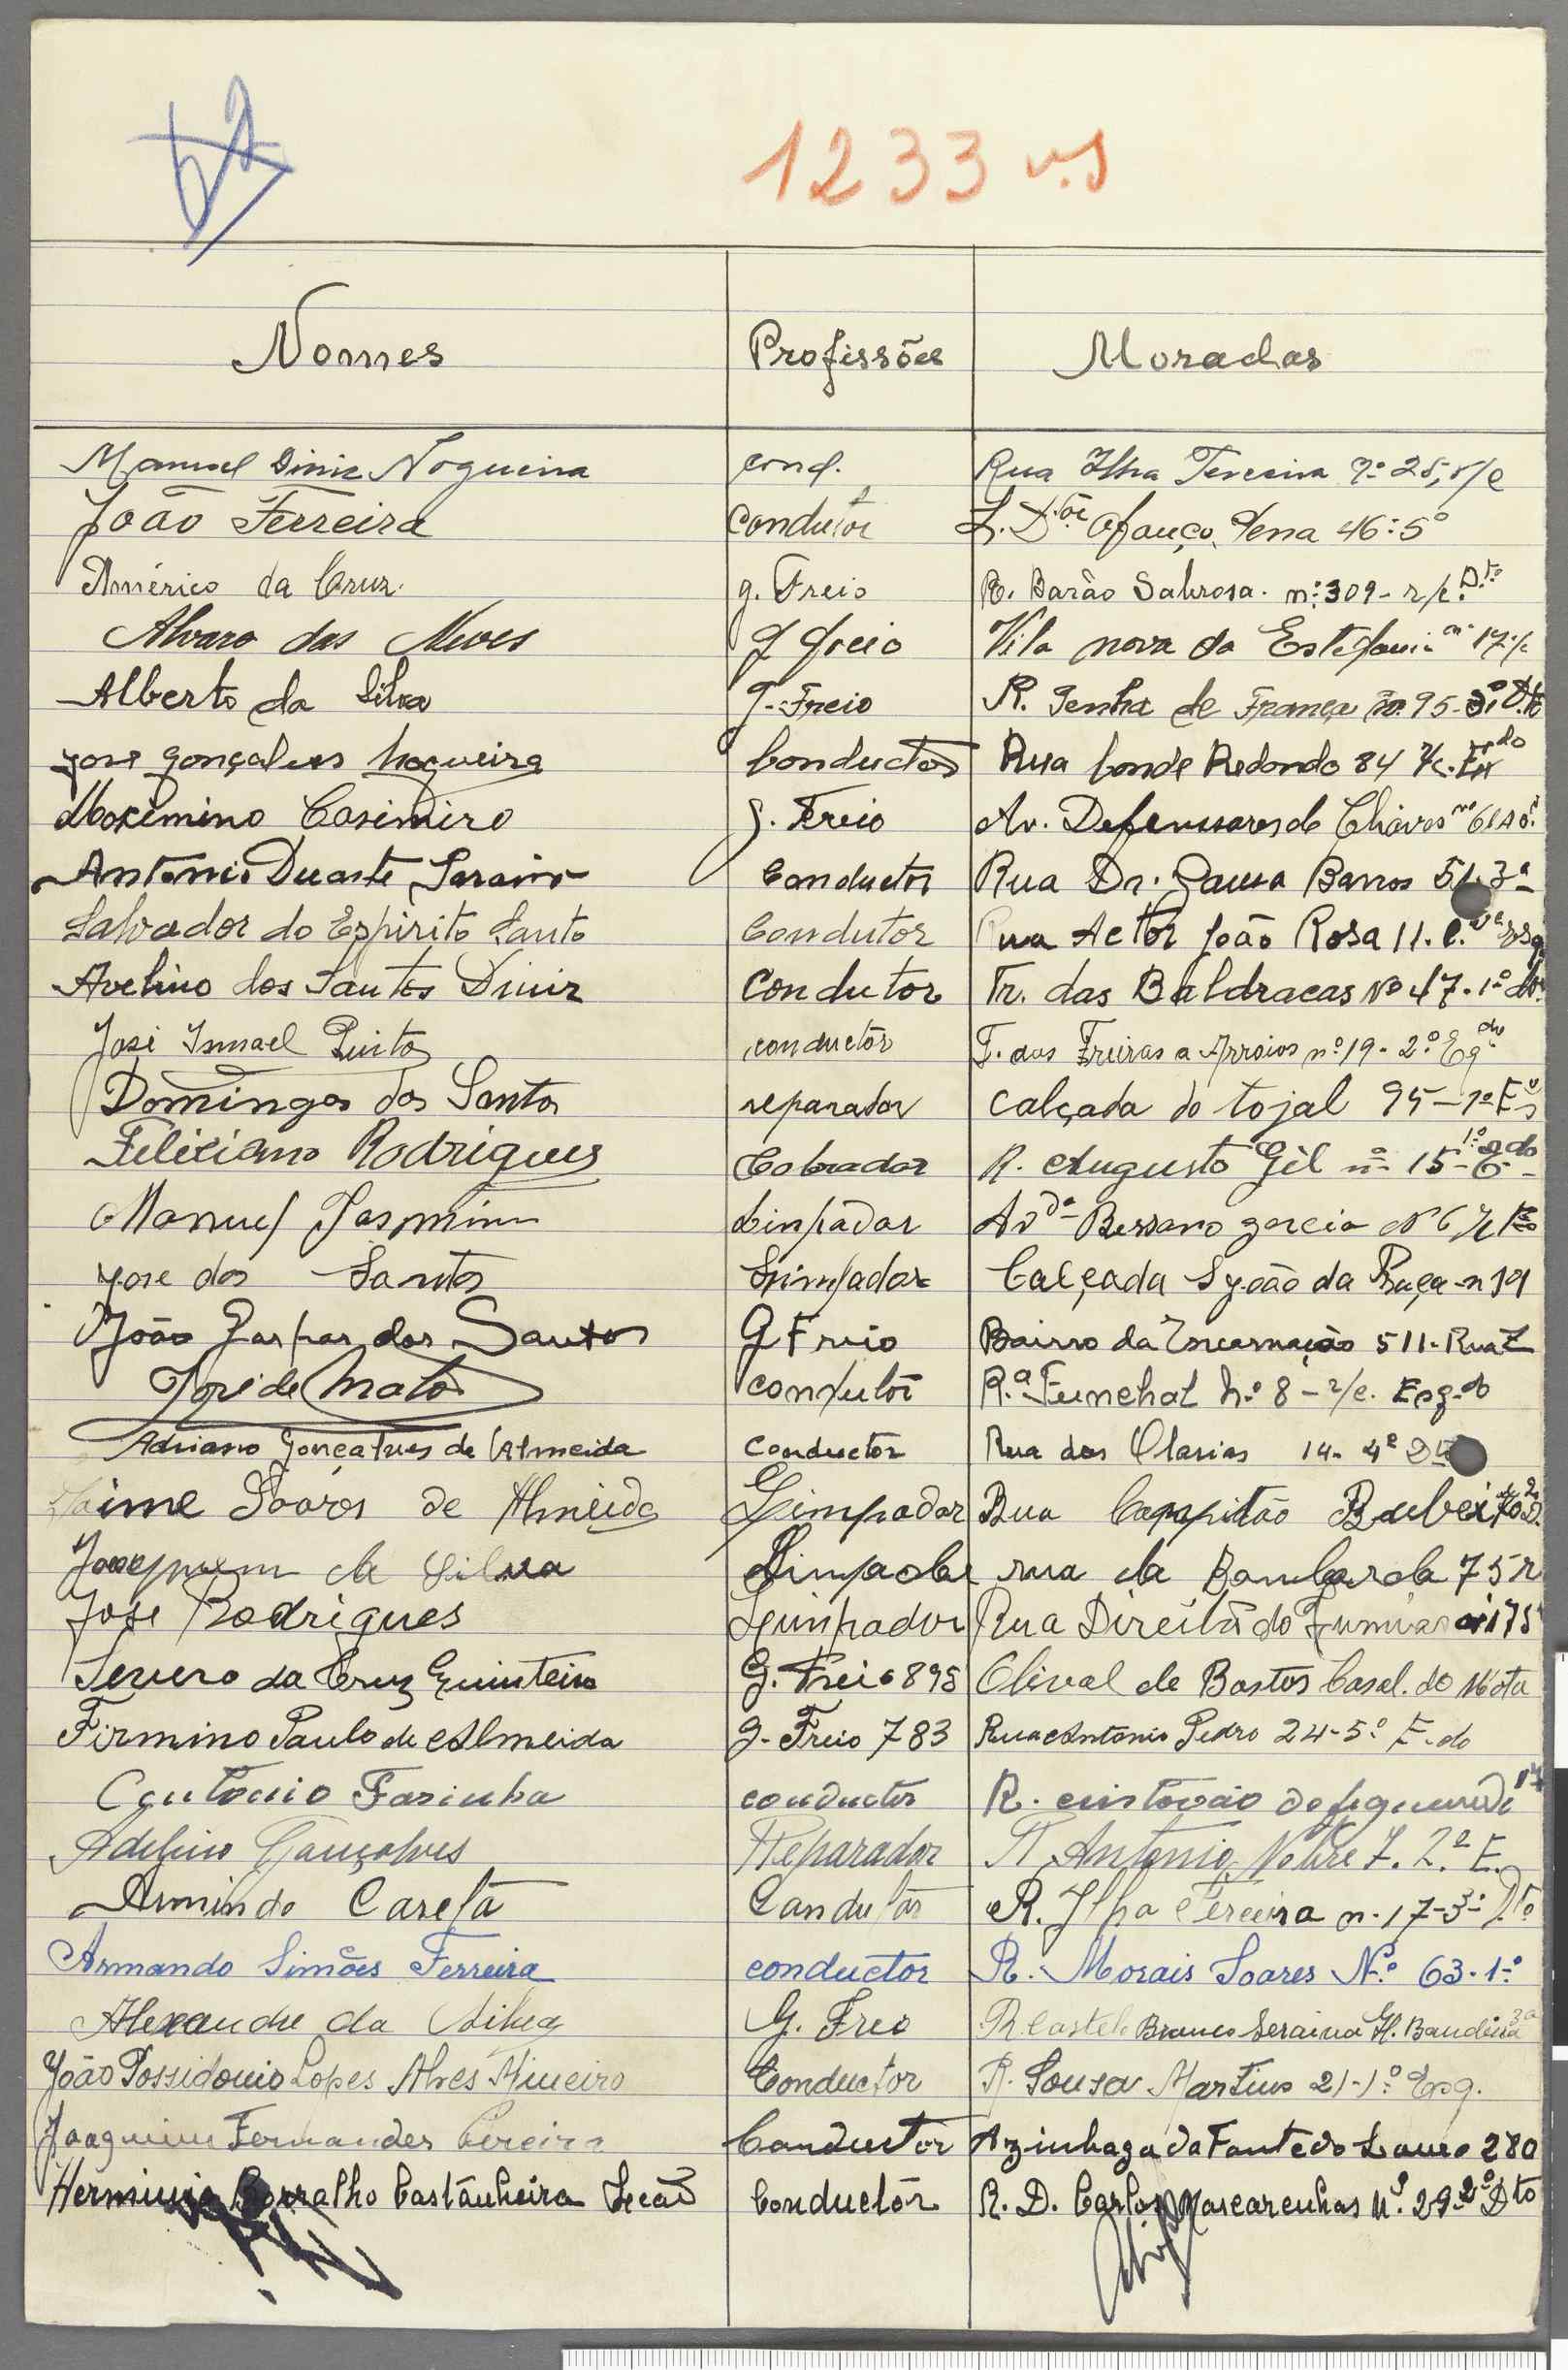 1233 v.s
Nomes Profissões Moradas
Manuel Diniz Nogueira cond. Rua Ilha Terceira nº 25, r/c
João Ferreira Condutor 46-5º
Américo da Cruz. g. Freio R. Barão Sabrosa. nº 309- r/c. Dto
Alvaro das Neves g freio Vila nova da Estefania nº 17
Alberto da Silva g. Freio R. Penha de França no. 95-3º Dto
José Gonçalves Nogueira Conductor Rua Conde Redondo 84 r/c. Exdo
Maximino Casimiro g. Freio Av. Defenssores de Chaves nº
Antonio Duarte Saraiva Conductor Rua Dr. Sousa Barros 3º
Salvador do Espirito Santo Condutor Rua Actor João Rosa 11. esq
Avelino dos Santos Diniz Condutor Tr. das Baldracas Nº 47-1º
José Ismael Pinto conductor T. das Freiras a Arroios nº 19- 2º Eqdo
Domingos dos Santos reparador Calçada do tojal 95-1º
Feliciano Rodrigues Cobrador R. Augusto Gil nº 15
Manuel Jasmim Limpador Avda Bessano garcia Nº 6
José dos Santos Limpador Calçada S João da Praça n 19
João Gaspar dos Santos G Freio Bairro da Encarnação 511-Rua
José de Mato condutor R.a Funchal nº 8 - r/c. Esq.do
Adriano Gonçalves de Almeida conductor Rua das Olarias 14- 4º
Jaime Soares de Almeida Limpador Rua Cappitão
Joaquim da Silva Limpador rua da Bombarda 75 r
José Rodrigues Limpador Rua Direita do 175
Severo da Cruz Quinteiro G. Freio 895 Olival de Bastos Casal. do Mota
Firmino Paulo de Almeida g. Freio 783 Rua Antonio Pedro 24-5º E.do
Antonio Farinha conductor R. cristovão de figueiredo
Adelino Gonçalves Reparador R Antonio Nobre 7. 2º E.
Armindo Careta Condutor R. Ilha Terceira n. 17-3º Dto
Armando Simões Ferreira conductor R. Morais Soares Nº 63-1º
Alexandre da Silva G. Freo R Castelo Branco Seraiva H. Bandeira
João Possidonio Lopes Alves Mineiro Conductor R. Sousa Martins 21-1º Esq.
Joaquim Fernandes Pereira Conductor Azinhaga da Fonte do Louro 280
Herminio Borralho Castanheira Leão Conductor R. D. Carlos Mascarenhas Nº 29-2º Dto